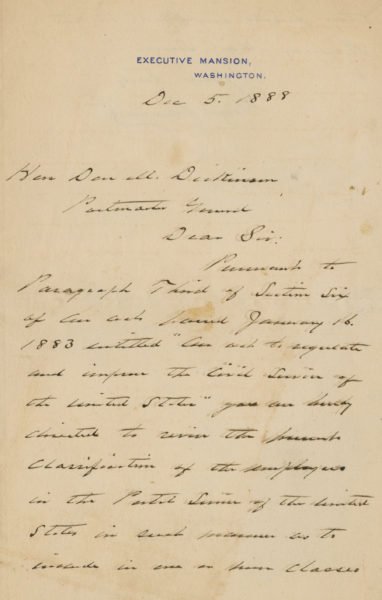 EXECUTIVE MANSION,
WASHINGTON.
Dec 5. 1888
Hon Don M. Dickinson
Postmaster General
Dear Sir:
Pursuant to
Paragraph Third of Section Six
of an act passed January 16.
1883 entitled "An act to regulate
and improve the Civil Service of
the United States" you are hereby
directed to revise the present
classification of the employees
in the Postal Service of the United
States in such manner as to
include in one or more classes